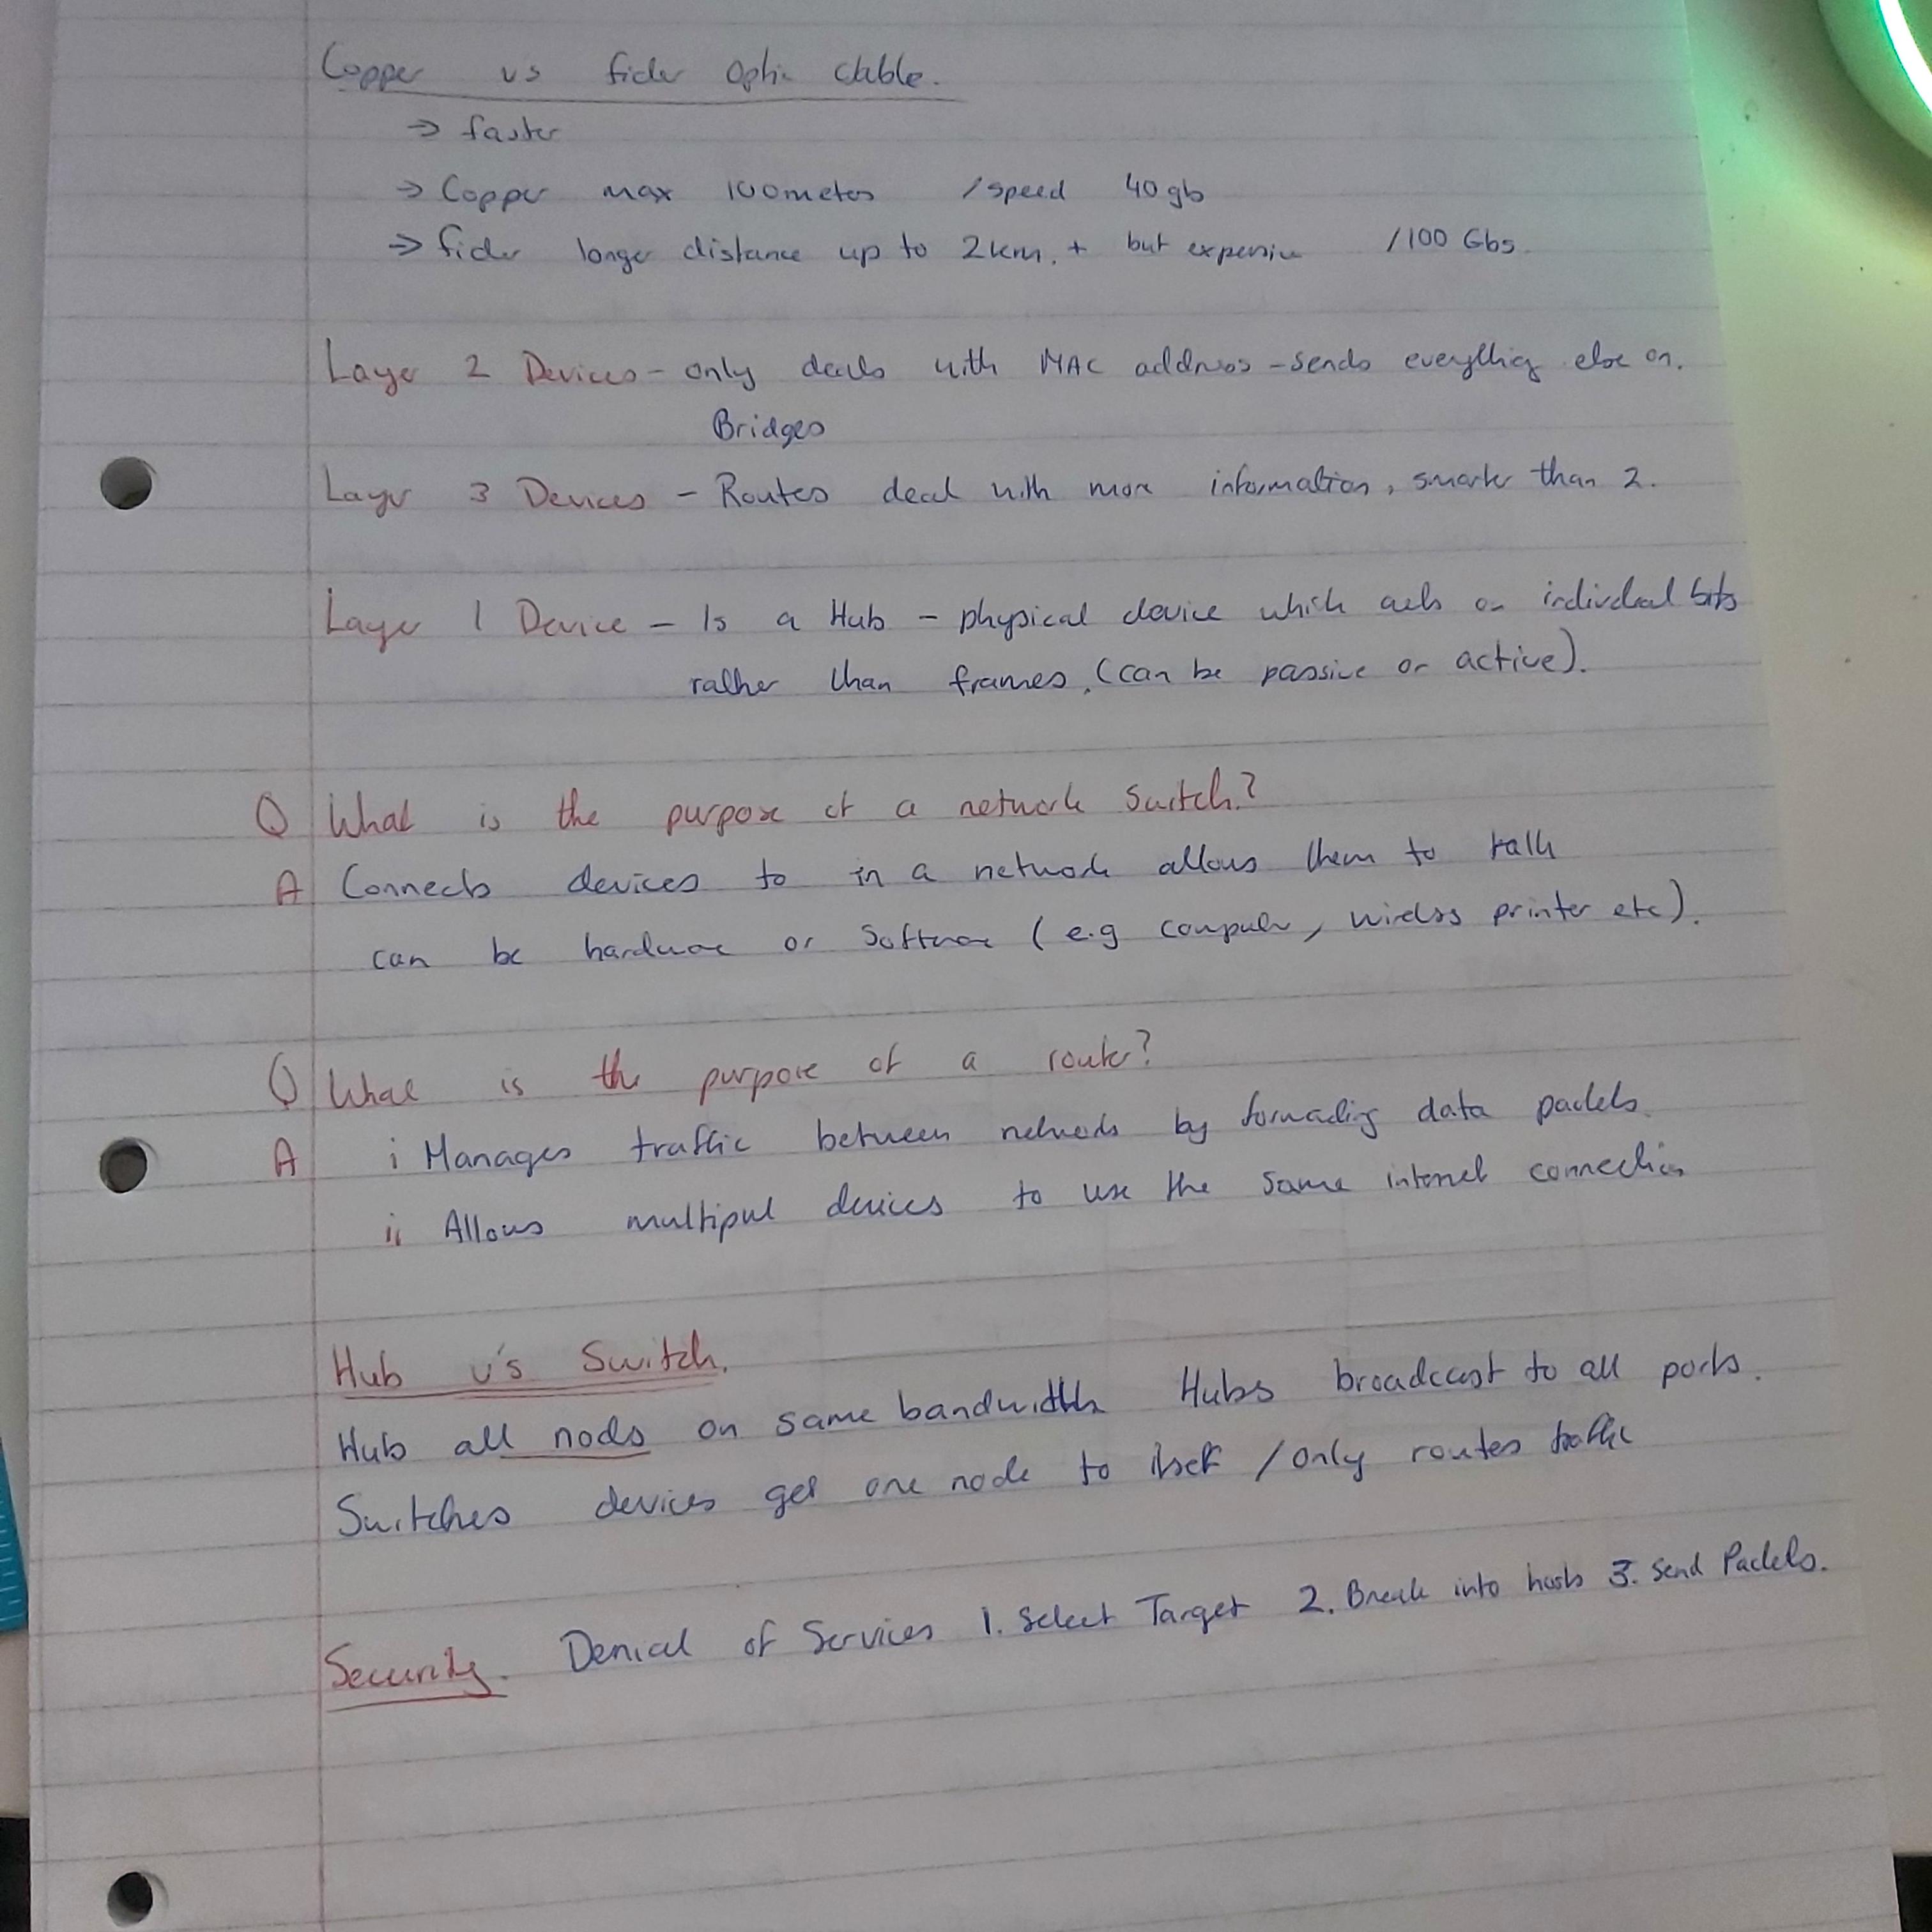 Copper vs fider Optic Cable.
→ faster
→ Copper max 100meters / speed 40gb
→ fider longer distance up to 2km. + but expensive / 100 Gbs.
Layer 2 Devices - only deals with MAC address - sends everything else on.
Bridges
Layer 3 Devices - Routes deal with more information, smarter than 2.
Layer 1 Device - Is a Hub - physical device which acts on individual bits
rather than frames. (can be passive or active).
Q What is the purpose of a network Switch?
A Connects devices to in a network allows them to talk
can be hardware or Software (e.g computer, wireless printer etc).
Q What is the purpose of a router?
A i Manages traffic between networks by forwarding data packets.
ii Allows multipul devices to use the same internet connection
Hub v's Switch.
Hub all nods on same bandwidth Hubs broadcast to all ports.
Switches devices get one node to itself / only routes traffic
Security. Denial of Services 1. Select Target 2. Break into hosts 3. Send Packets.